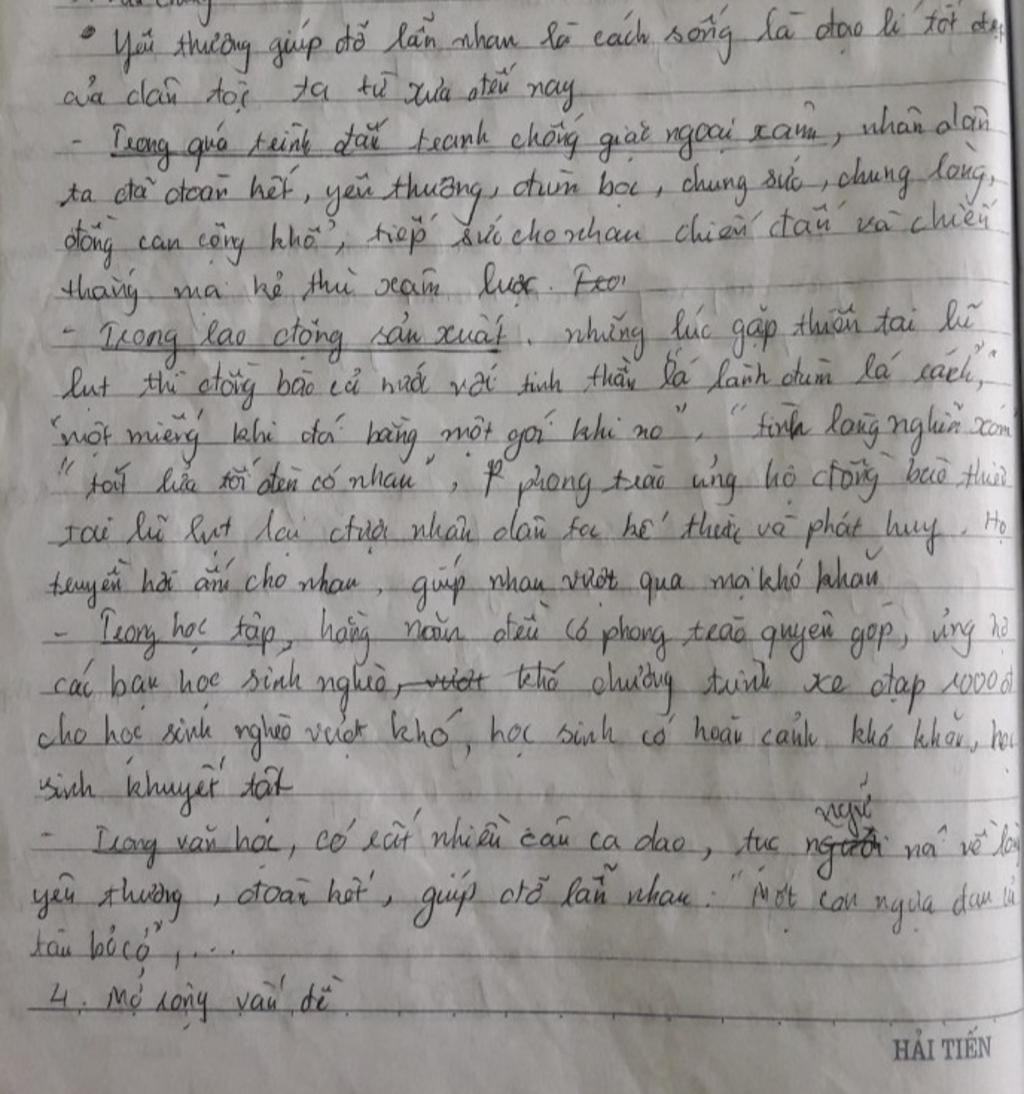 • Yêu thương giúp đỡ lẫn nhau là cách sống là đạo lí tốt đẹp
của dân tộc ta từ xưa đến nay
- Trong quá trình đấu tranh chống giặc ngoại xâm, nhân dân
ta đã đoàn kết, yêu thương, đùm bọc, chung sức, chung lòng,
đồng cam cộng khổ, tiếp sức cho nhau chiến đấu và chiến
thắng mọi kẻ thù xâm lược.
- Trong lao động sản xuất, những lúc gặp thiên tai lũ
lụt thì đồng bào cả nước với tinh thần "lá lành đùm lá rách",
"một miếng khi đói bằng một gói khi no", "tình làng nghĩa xóm
"tắt lửa tối đèn có nhau", phong trào ủng hộ đồng bào thiên
tai lũ lụt lại được nhân dân ta kế thừa và phát huy. Họ
truyền hơi ấm cho nhau, giúp nhau vượt qua mọi khó khăn
- Trong học tập, hằng năm đều có phong trào quyên góp, ủng hộ
các bạn học sinh nghèo, vượt khó chương trình xe đạp 1000đ
cho học sinh nghèo vượt khó, học sinh có hoàn cảnh khó khăn, học
sinh khuyết tật
- Trong văn học, có rất nhiều câu ca dao, tục ngữ nói về lòng
yêu thương, đoàn kết, giúp đỡ lẫn nhau: "Một con ngựa đau cả
tàu bỏ cỏ",...
4. Mở rộng vấn đề
HẢI TIẾN